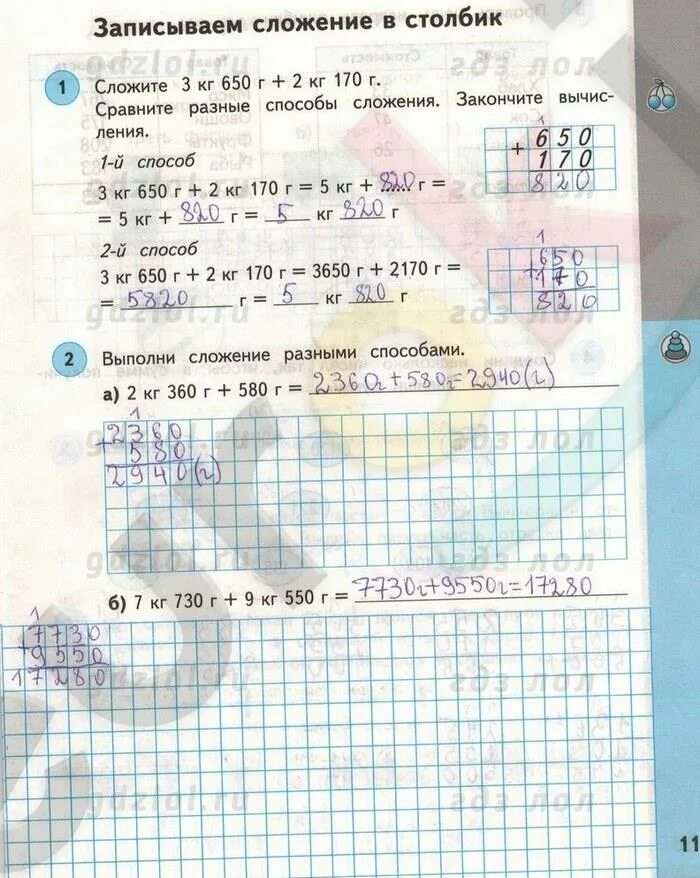 Записываем сложение в столбик
1 Сложите 3 кг 650 г + 2 кг 170 г.
Сравните разные способы сложения. Закончите вычис-
ления.
1-й способ
1
+ 650
170
820
3 кг 650 г + 2 кг 170 г = 5 кг + 820 г =
= 5 кг + 820 г = 5 кг 820 г
2-й способ
3 кг 650 г + 2 кг 170 г = 3650 г + 2170 г =
= 5820 г = 5 кг 820 г
1
+650
170
820
2 Выполни сложение разными способами.
а) 2 кг 360 г + 580 г = 2360г+580г=2940(г)
1
+2360
580
2940(г)
б) 7 кг 730 г + 9 кг 550 г = 7730г+9550г=17280
1
+7730
9550
17280
11
gdzlol.ru
гдз лол